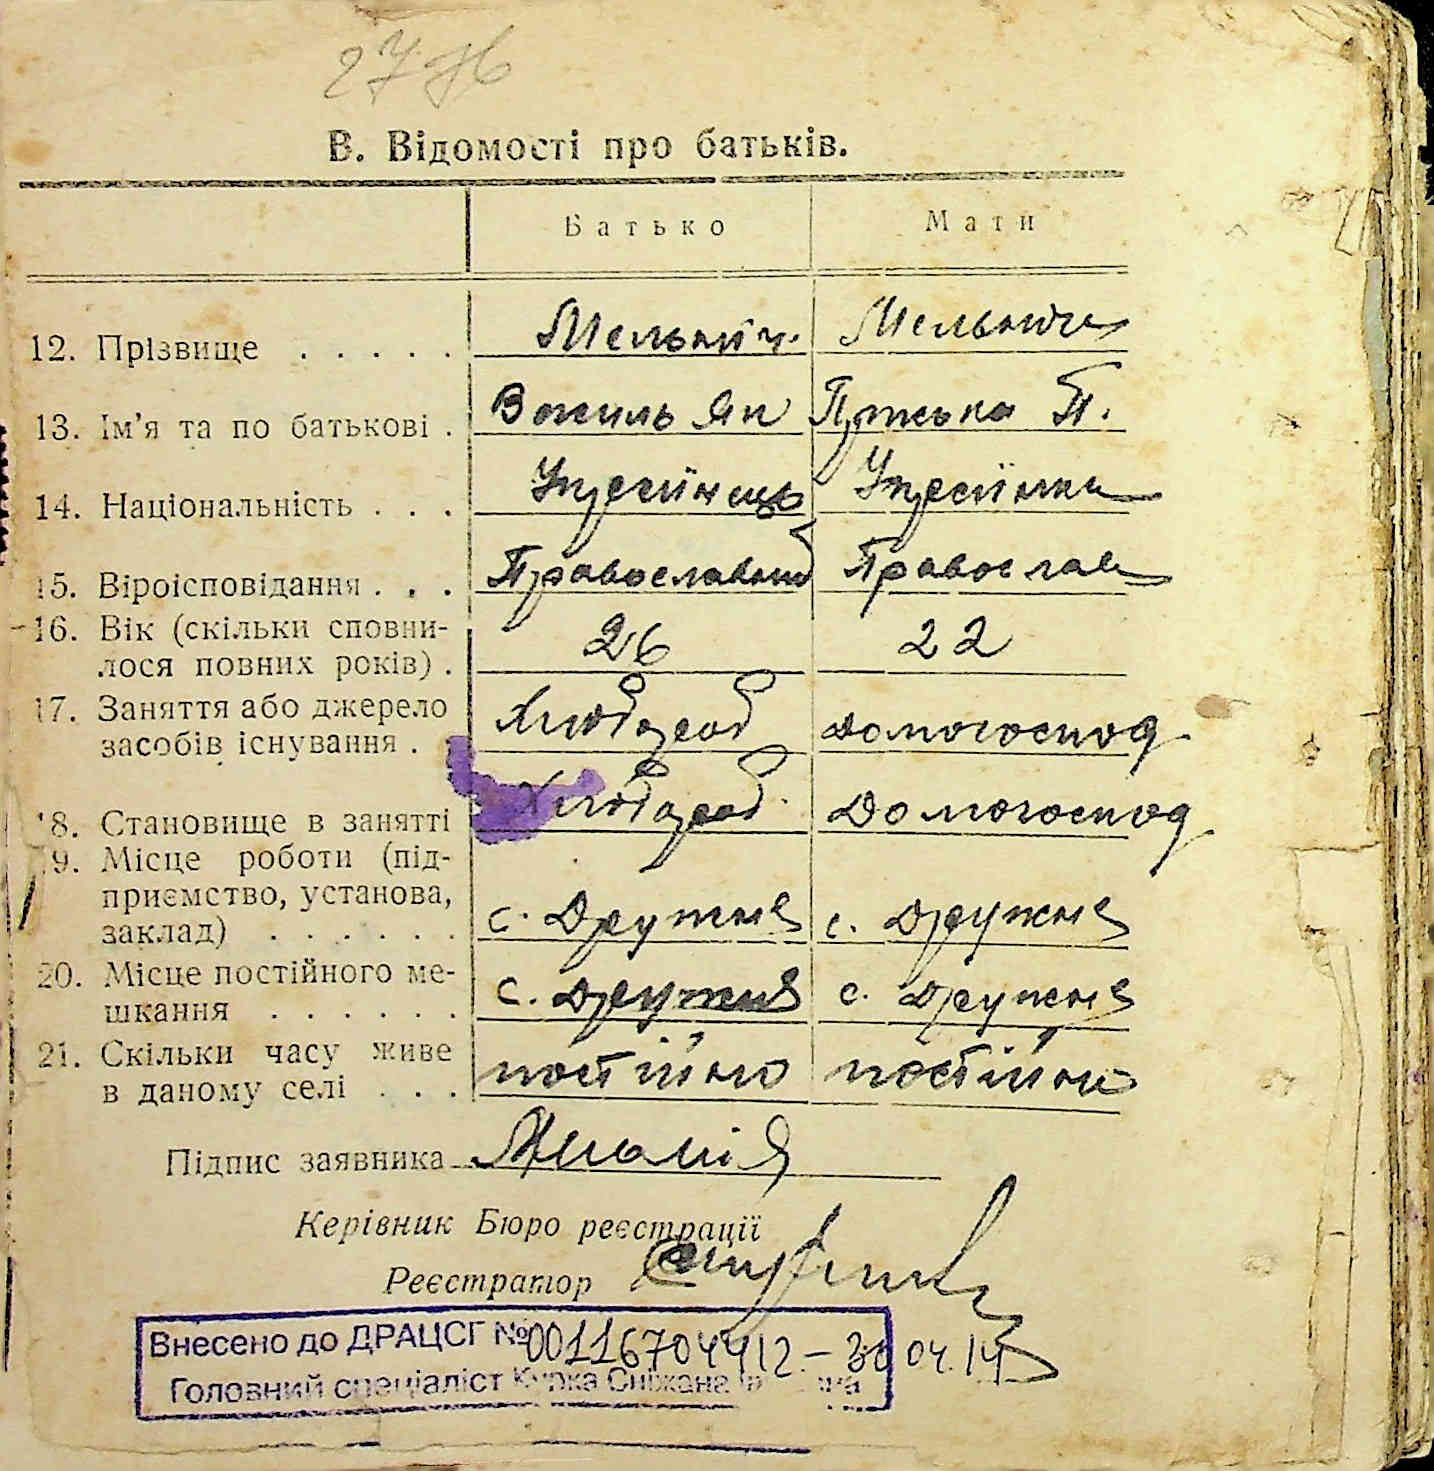 27
В. Відомості про батьків.
Батько Мати
12. Прізвище . . . . . Мельнич. Мельнич
13. Ім'я та по батькові . Василь Ян П.
14. Національність . . . Українець Українка
15. Віроісповідання . . . Православний Православ
16. Вік (скільки сповни-
лося повних років) . 26 22
17. Заняття або джерело
засобів існування . Хлібороб домогоспод
18. Становище в занятті Хлібороб Домогоспод
19. Місце роботи (під-
приємство, установа,
заклад) . . . . . . с. Дружне с. Дружне
20. Місце постійного ме-
шкання . . . . . . с. Дружне с. Дружне
21. Скільки часу живе
в даному селі . . . постійно постійно
Підпис заявника
Керівник Бюро реєстрації
Реєстратор
Внесено до ДРАЦСГ №00116704412 – 30 04.14
Головний спеціаліст Курка Сніжана